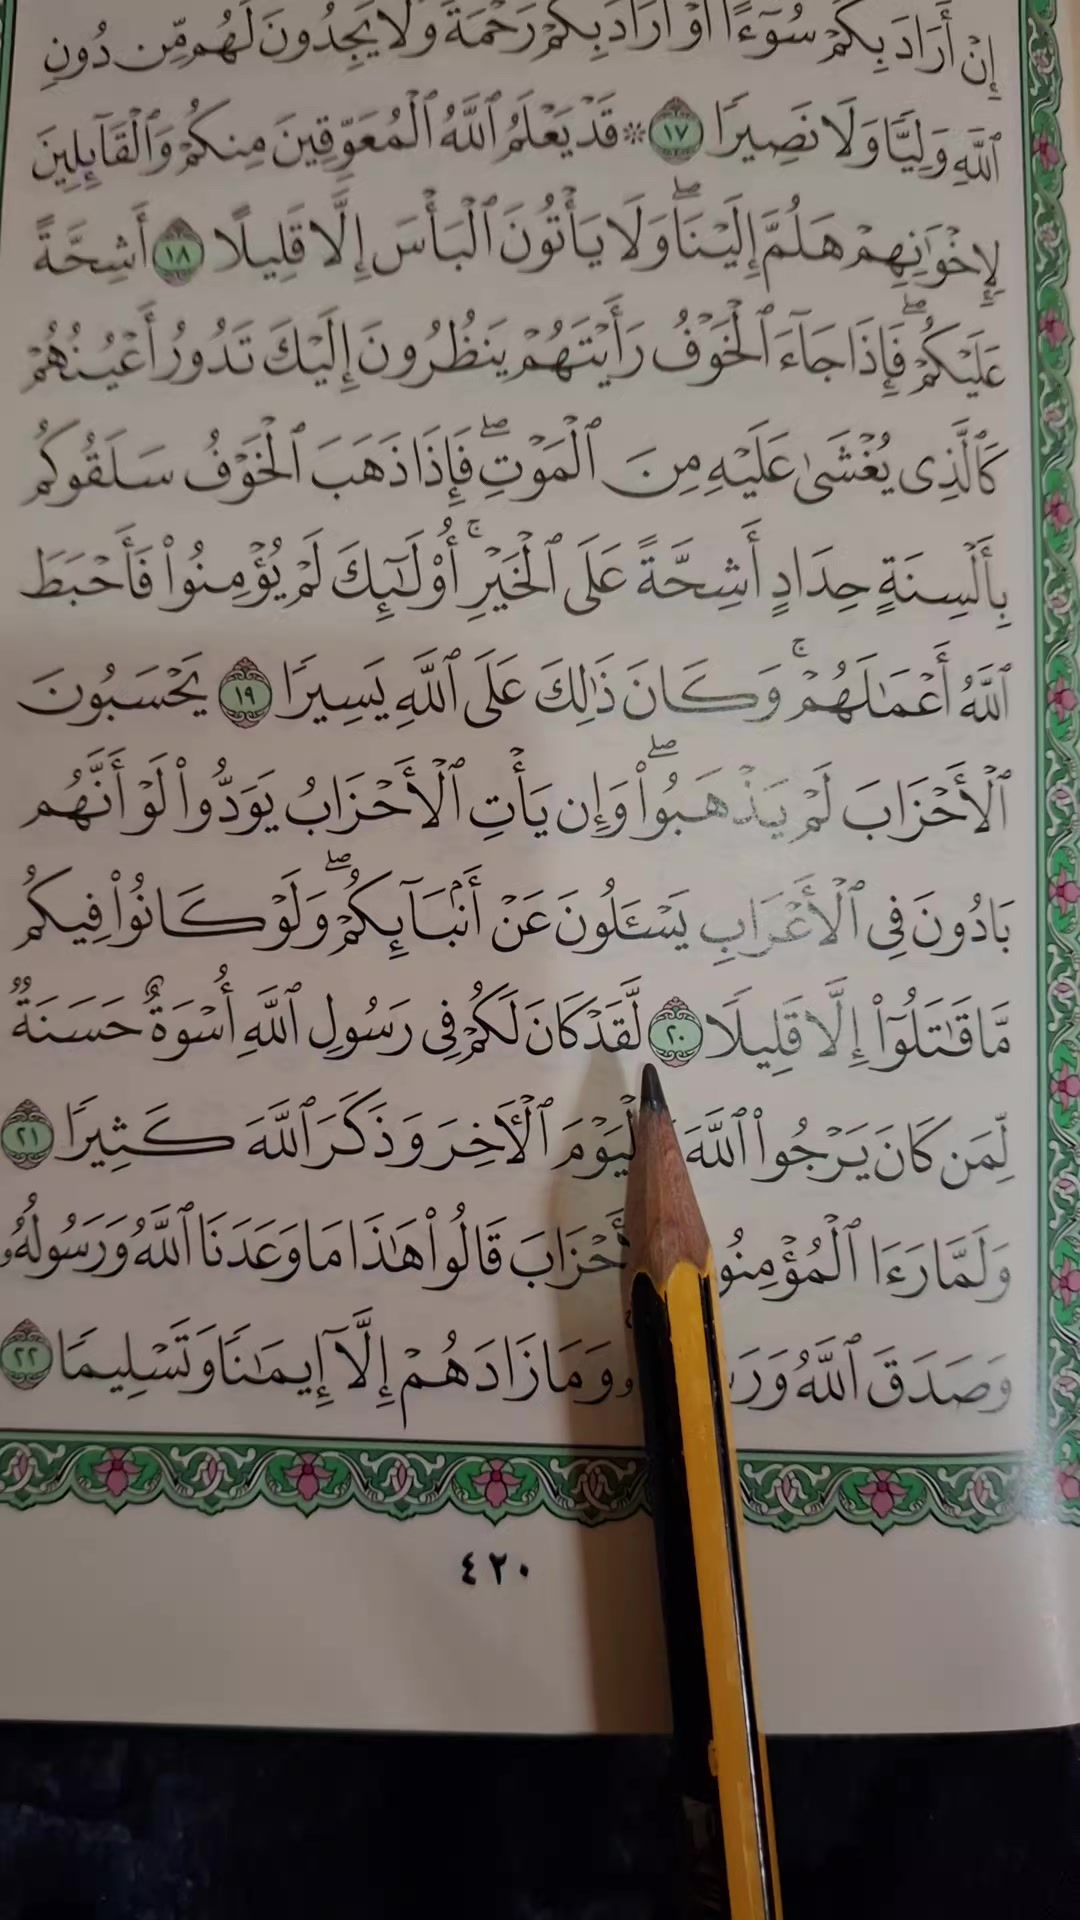 إِنْ أَرَادَ بِكُمْ سُوٓءًا أَوْ أَرَادَ بِكُمْ رَحْمَةً وَلَا يَجِدُونَ لَهُم مِّن دُونِ
ٱللَّهِ وَلِيًّا وَلَا نَصِيرًا ١٧ ۞ قَدْ يَعْلَمُ ٱللَّهُ ٱلْمُعَوِّقِينَ مِنكُمْ وَٱلْقَآئِلِينَ
لِإِخْوَٰنِهِمْ هَلُمَّ إِلَيْنَا ۖ وَلَا يَأْتُونَ ٱلْبَأْسَ إِلَّا قَلِيلًا ١٨ أَشِحَّةً
عَلَيْكُمْ ۖ فَإِذَا جَآءَ ٱلْخَوْفُ رَأَيْتَهُمْ يَنظُرُونَ إِلَيْكَ تَدُورُ أَعْيُنُهُمْ
كَٱلَّذِى يُغْشَىٰ عَلَيْهِ مِنَ ٱلْمَوْتِ ۖ فَإِذَا ذَهَبَ ٱلْخَوْفُ سَلَقُوكُم
بِأَلْسِنَةٍ حِدَادٍ أَشِحَّةً عَلَى ٱلْخَيْرِ ۚ أُو۟لَـٰٓئِكَ لَمْ يُؤْمِنُوا۟ فَأَحْبَطَ
ٱللَّهُ أَعْمَـٰلَهُمْ ۚ وَكَانَ ذَٰلِكَ عَلَى ٱللَّهِ يَسِيرًا ١٩ يَحْسَبُونَ
ٱلْأَحْزَابَ لَمْ يَذْهَبُوا۟ ۖ وَإِن يَأْتِ ٱلْأَحْزَابُ يَوَدُّوا۟ لَوْ أَنَّهُم
بَادُونَ فِى ٱلْأَعْرَابِ يَسْـَٔلُونَ عَنْ أَنۢبَآئِكُمْ ۖ وَلَوْ كَانُوا۟ فِيكُم
مَّا قَـٰتَلُوٓا۟ إِلَّا قَلِيلًا ٢٠ لَّقَدْ كَانَ لَكُمْ فِى رَسُولِ ٱللَّهِ أُسْوَةٌ حَسَنَةٌ
لِّمَن كَانَ يَرْجُوا۟ ٱللَّهَ ٱلْـَٔاخِرَ وَذَكَرَ ٱللَّهَ كَثِيرًا ٢١
وَلَمَّا رَءَا قَالُوا۟ هَـٰذَا مَا وَعَدَنَا ٱللَّهُ وَرَسُولُهُۥ
وَصَدَقَ ٱللَّهُ وَمَا زَادَهُمْ إِلَّآ إِيمَـٰنًا وَتَسْلِيمًا ٢٢
٤٢٠